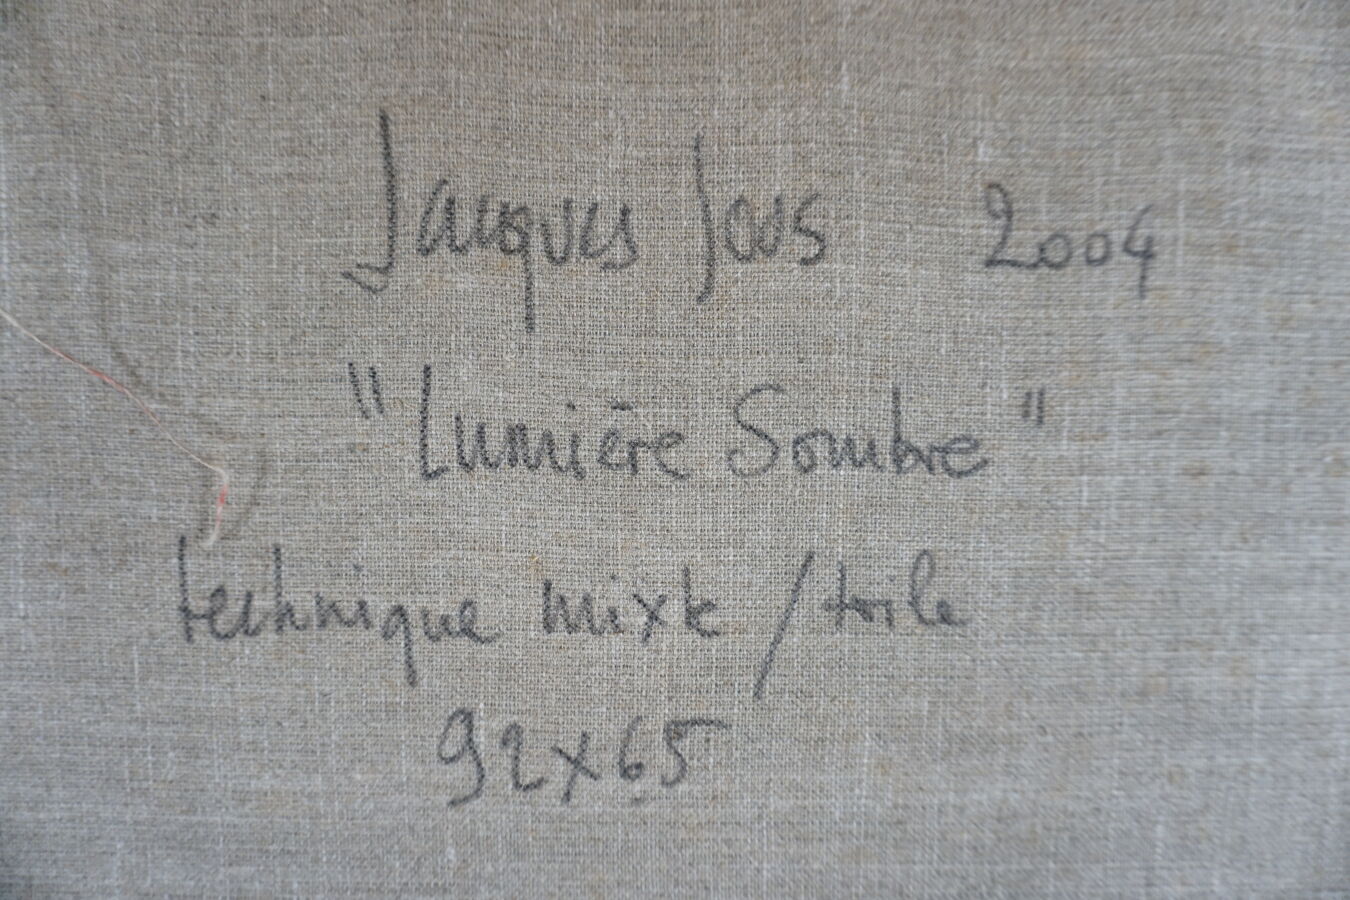 Jacques Jous 2004
"Lumière Sombre"
technique mixte / toile
92x65